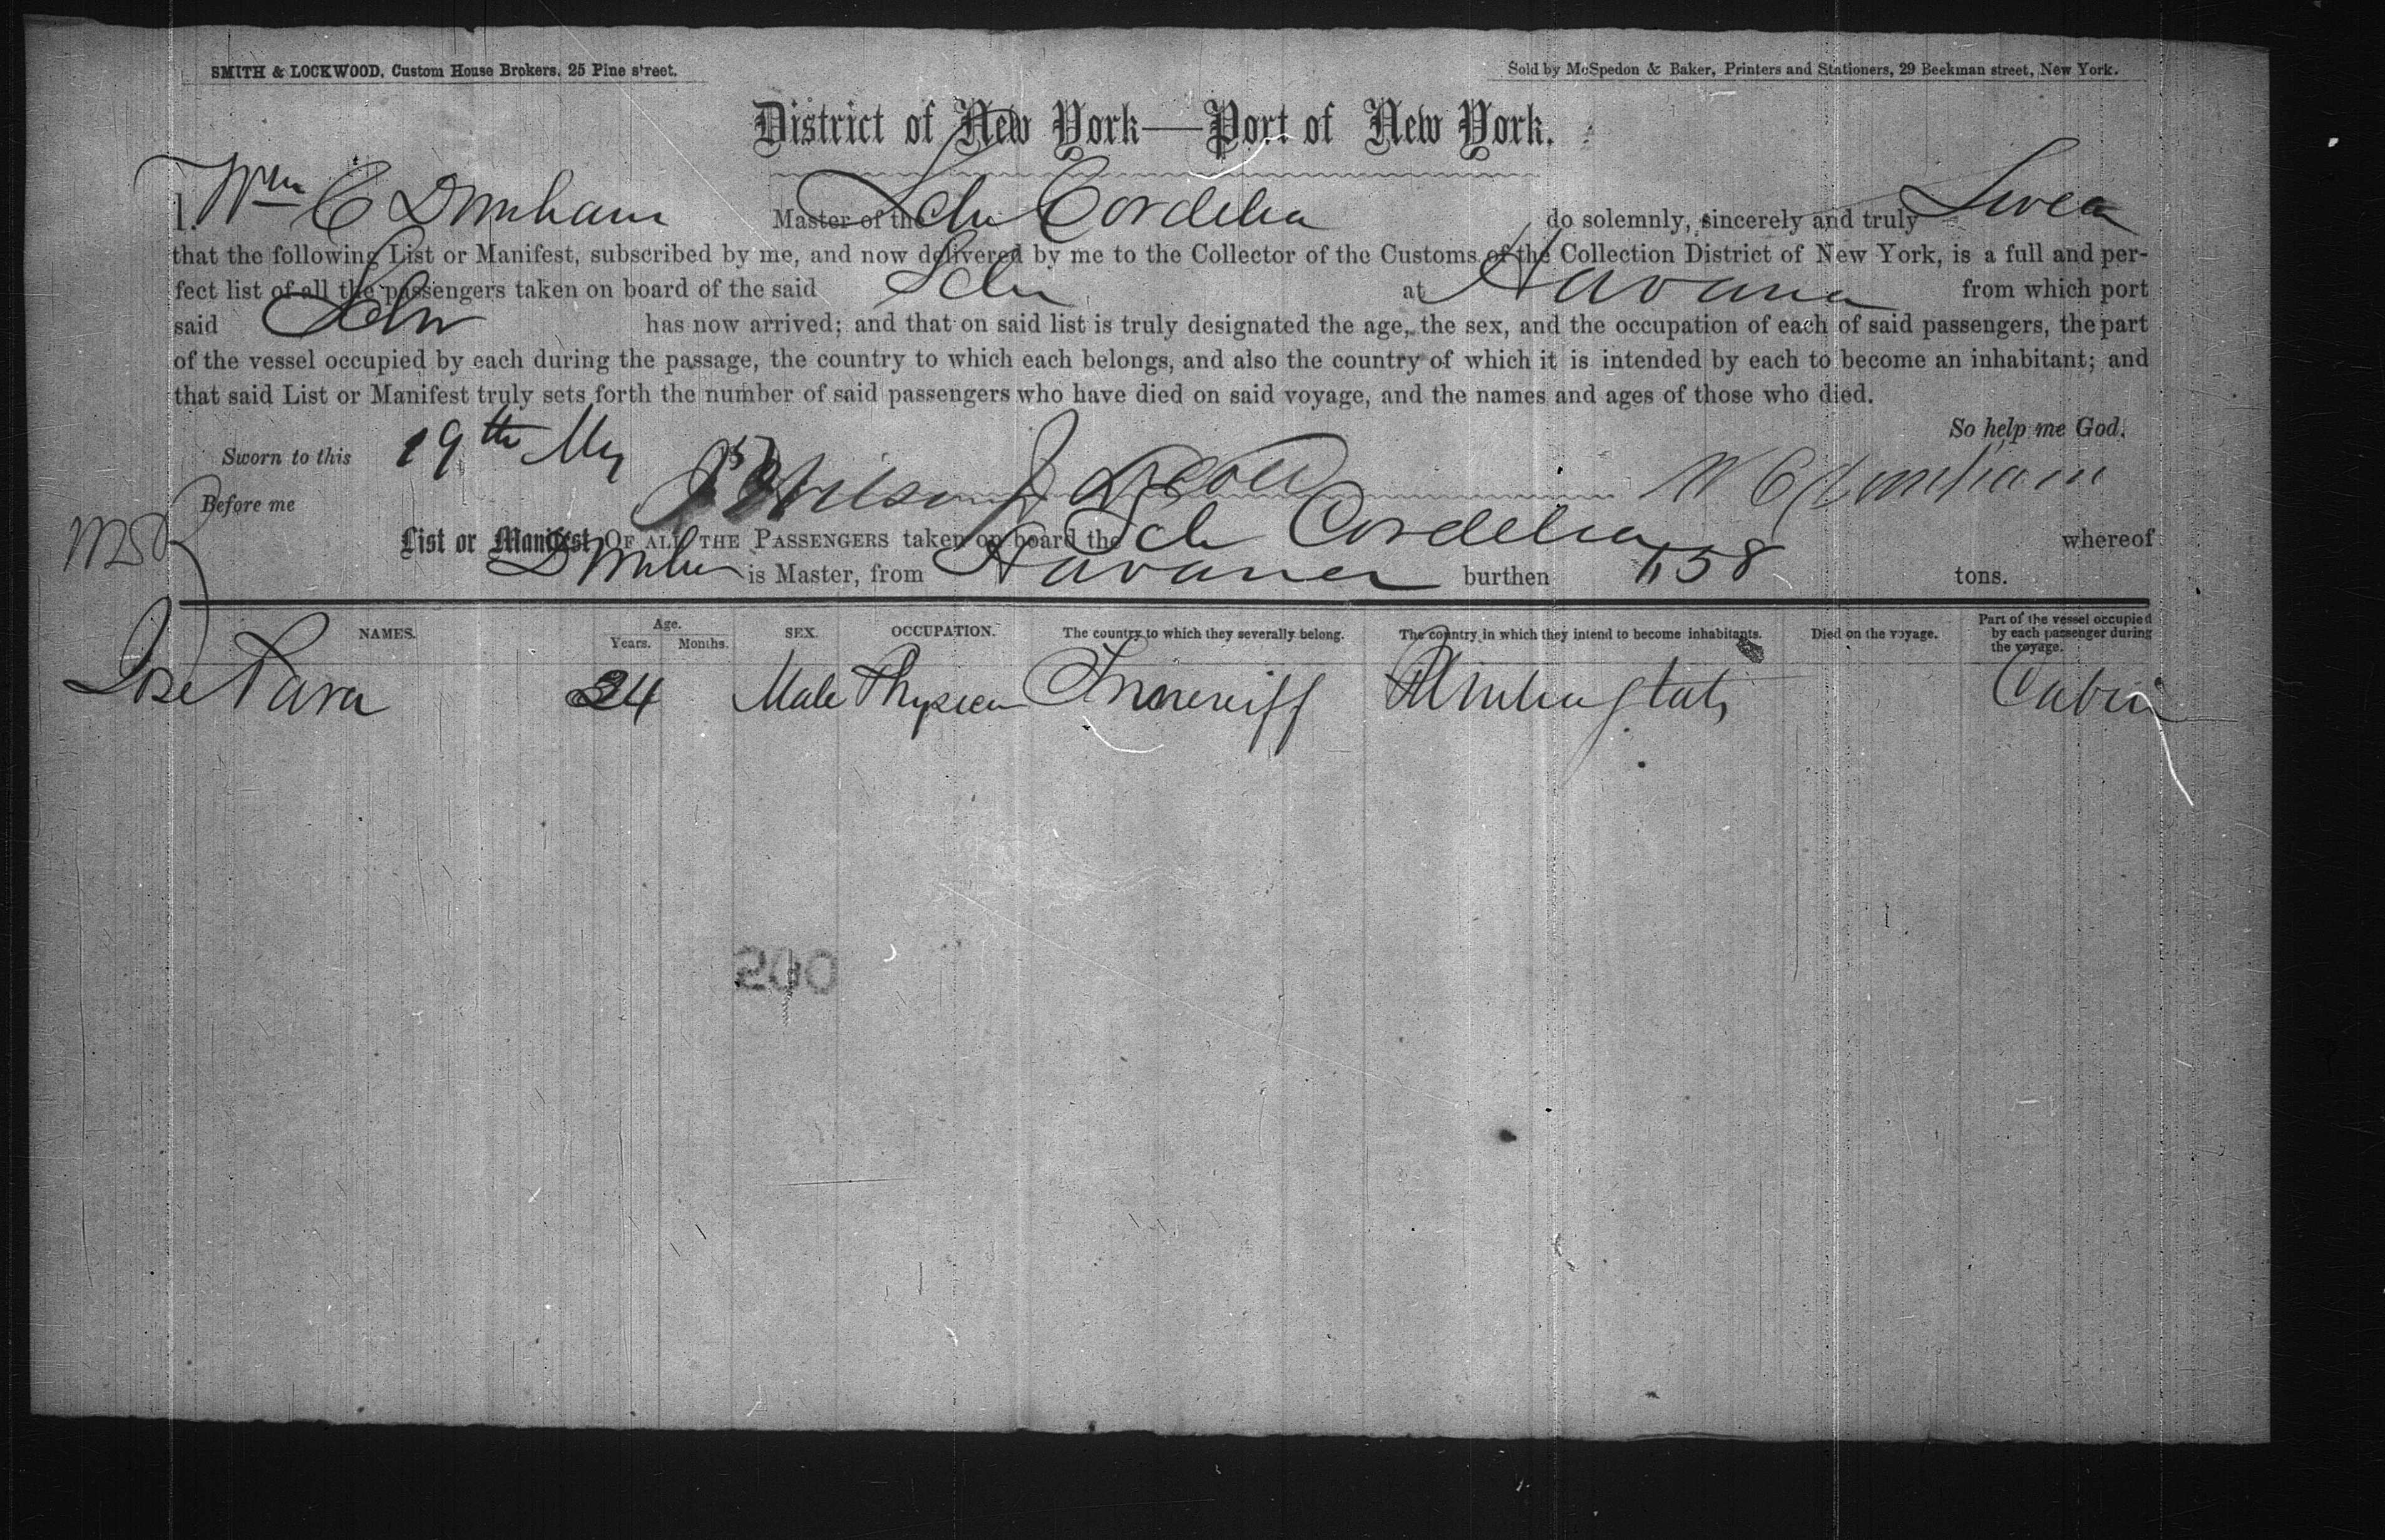 SMITH & LOCKWOOD, Custom House Brokers, 25 Pine street.
Sold by McSpedon & Baker, Printers and Stationers, 29 Beekman street, New York.
District of New York—Port of New York.
I, Wm C Dunham Master of the Schr Cordelia do solemnly, sincerely and truly Swear
that the following List or Manifest, subscribed by me, and now delivered by me to the Collector of the Customs of the Collection District of New York, is a full and per-
fect list of all the passengers taken on board of the said Schr at Havana from which port
said Schr has now arrived; and that on said list is truly designated the age, the sex, and the occupation of each of said passengers, the part
of the vessel occupied by each during the passage, the country to which each belongs, and also the country of which it is intended by each to become an inhabitant; and
that said List or Manifest truly sets forth the number of said passengers who have died on said voyage, and the names and ages of those who died.
So help me God.
Sworn to this 19th My
Before me W C Dunham
List or Manifest OF ALL THE PASSENGERS taken on board the Sch Cordelia whereof
Dunham is Master, from Havana burthen 158 tons.
NAMES. Age. Years. Months. SEX. OCCUPATION. The country to which they severally belong. The country in which they intend to become inhabitants. Died on the voyage. Part of the vessel occupied by each passenger during the voyage.
Jose Para 24 Male Cabin
200